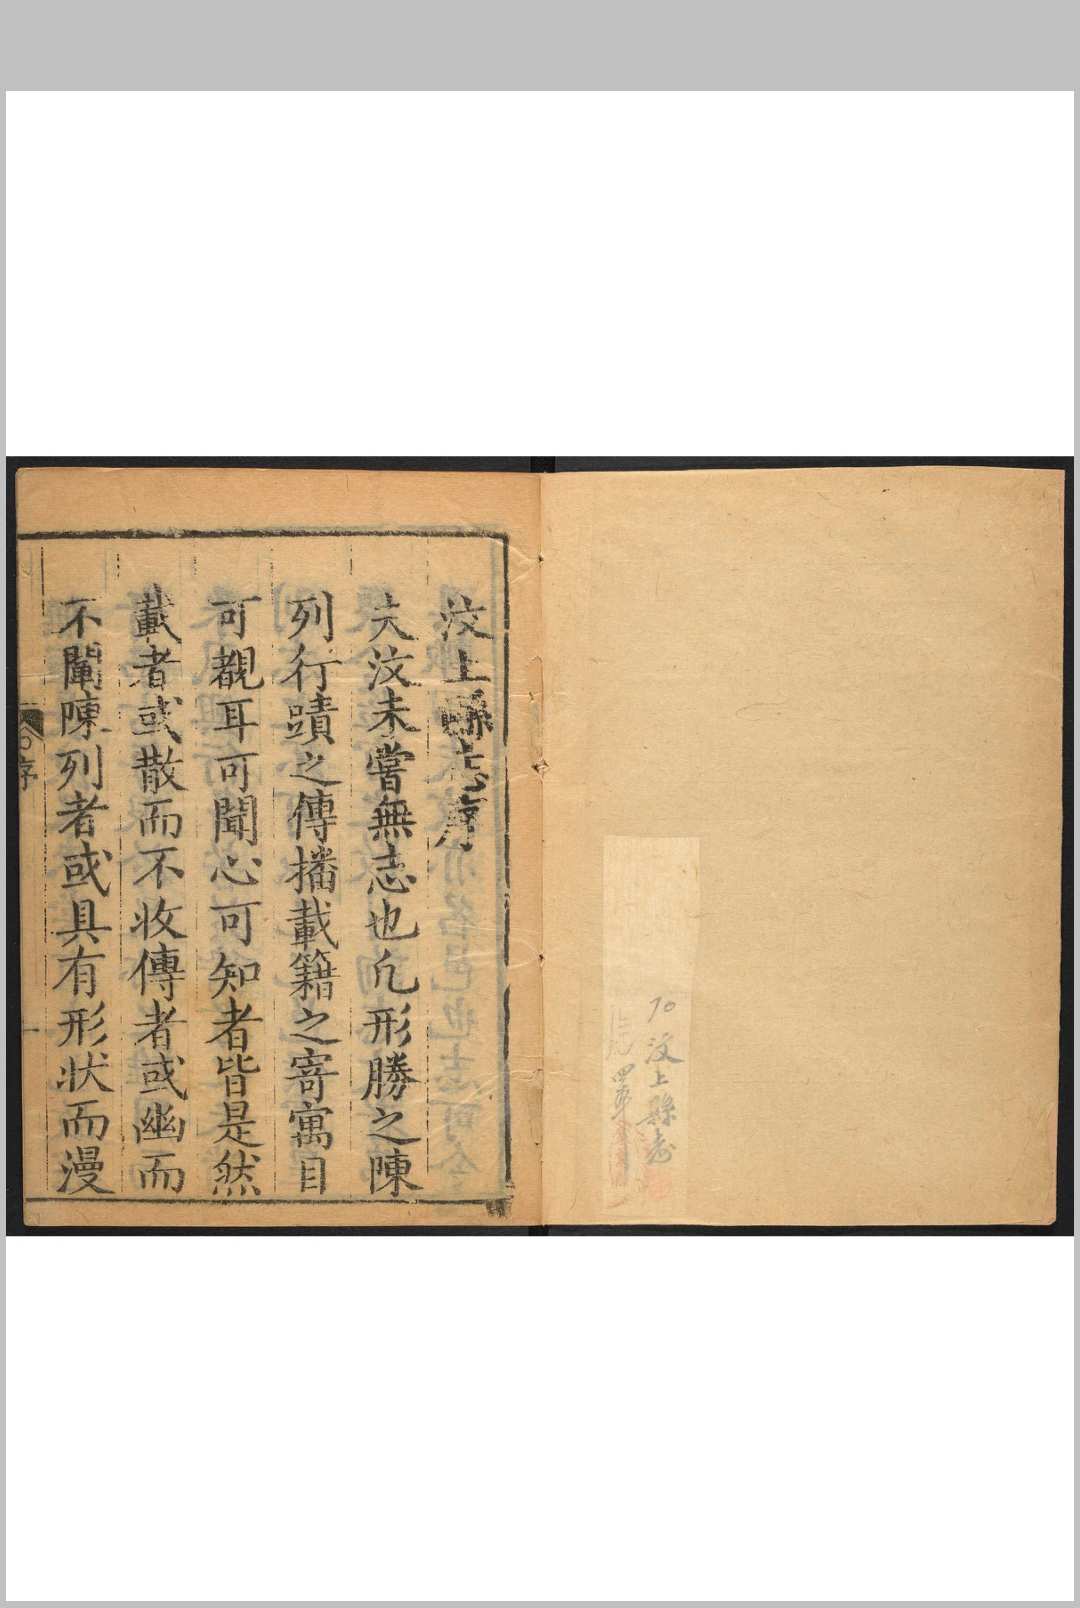 70 汶上縣志
四華
汶上縣志序
夫汶未嘗無志也凡形勝之陳
列行蹟之傳播載籍之寄寓目
可覩耳可聞心可知者皆是然
載者或散而不收傳者或幽而
不闡陳列者或具有形狀而漫
序